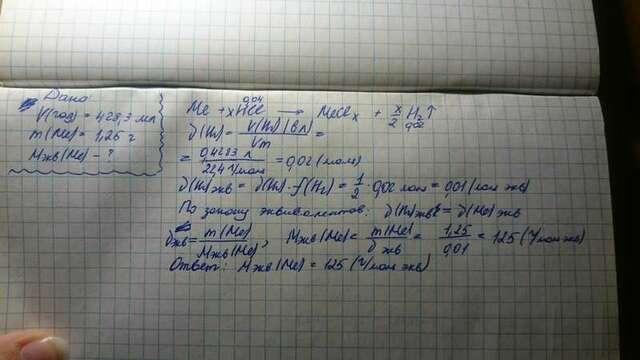 Дано
V(газ) = 428,3 мл
m(Me) = 1,25 г
Мэкв(Me) - ?
0,04
Me + xHCl → MeClx + x/2 H2↑
0,02
ϑ(H2) = V(H2) (в л) / Vm =
= 0,4283 л / 22,4 л/моль = 0,02 (моль)
ϑ(H2)экв = ϑ(H2) · f(H2) = 1/2 · 0,02 моль = 0,01 (моль экв)
По закону эквивалентов: ϑ(H2)экв = ϑ(Me) экв
ϑэкв = m(Me) / Мэкв(Me) ; Мэкв(Me) = m(Me) / ϑ экв = 1,25 / 0,01 = 125 (г/моль экв)
Ответ: Мэкв(Me) = 125 (г/моль экв)